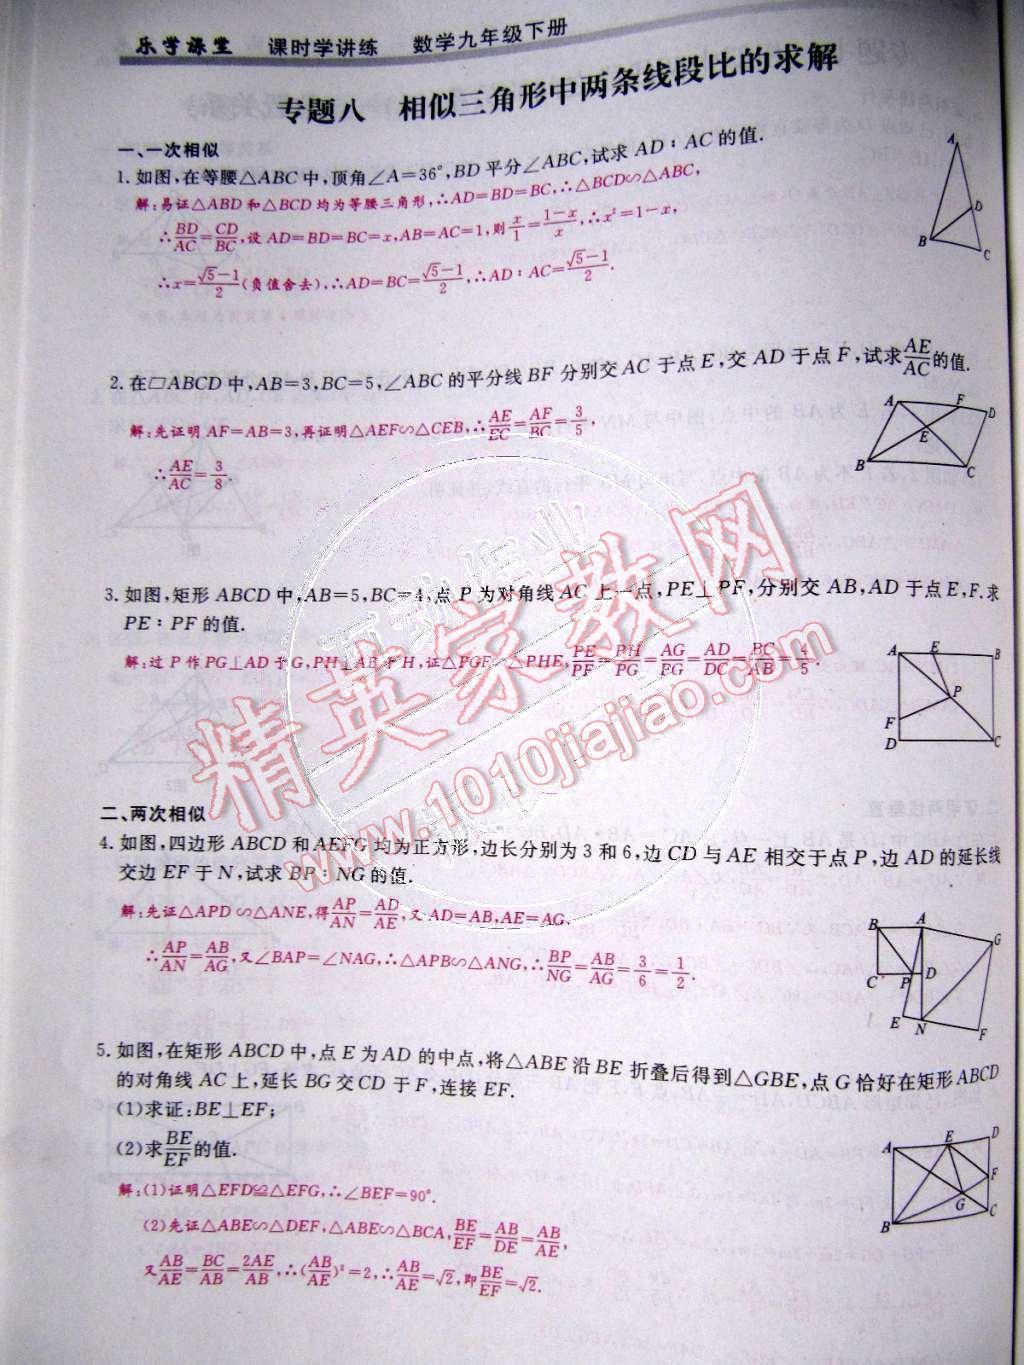 乐学课堂 课时学讲练 数学九年级下册
专题八 相似三角形中两条线段比的求解
一、一次相似
1. 如图,在等腰△ABC中,顶角∠A=36°,BD平分∠ABC,试求AD∶AC的值.
解:易证△ABD和△BCD均为等腰三角形,∴AD=BD=BC,∴△BCD∽△ABC,
∴BD/AC=CD/BC,设AD=BD=BC=x,AB=AC=1,则x/1=(1-x)/x,∴x²=1-x,
∴x=(√5-1)/2(负值舍去),∴AD=BC=(√5-1)/2,∴AD∶AC=(√5-1)/2.
A
D
B
C
2. 在□ABCD中,AB=3,BC=5,∠ABC的平分线BF分别交AC于点E,交AD于点F,试求AE/AC的值.
解:先证明AF=AB=3,再证明△AEF∽△CEB,∴AE/EC=AF/BC=3/5,
∴AE/AC=3/8.
A F D
E
B C
3. 如图,矩形ABCD中,AB=5,BC=4,点P为对角线AC上一点,PE⊥PF,分别交AB,AD于点E,F.求
PE∶PF的值.
解:过P作PG⊥AD于G,PH⊥AB于H,证△PGF∽△PHE,PE/PF=PH/PG=AG/PG=AD/DC=BC/AB=4/5.
A E B
P
F
D C
二、两次相似
4. 如图,四边形ABCD和AEFG均为正方形,边长分别为3和6,边CD与AE相交于点P,边AD的延长线
交边EF于N,试求BP∶NG的值.
解:先证△APD∽△ANE,得AP/AN=AD/AE,又AD=AB,AE=AG,
∴AP/AN=AB/AG,又∠BAP=∠NAG,∴△APB∽△ANG,∴BP/NG=AB/AG=3/6=1/2.
B A
G
C P D
E N F
5. 如图,在矩形ABCD中,点E为AD的中点,将△ABE沿BE折叠后得到△GBE,点G恰好在矩形ABCD
的对角线AC上,延长BG交CD于F,连接EF.
(1)求证:BE⊥EF;
(2)求BE/EF的值.
解:(1)证明△EFD≌△EFG,∴∠BEF=90°.
(2)先证△ABE∽△DEF,△ABE∽△BCA,BE/EF=AB/DE=AB/AE,
又AB/AE=BC/AB=2AE/AB,∴(AB/AE)²=2,∴AB/AE=√2,即BE/EF=√2.
A E D
F
G
B C
精英家教网
www.1010jiajiao.com